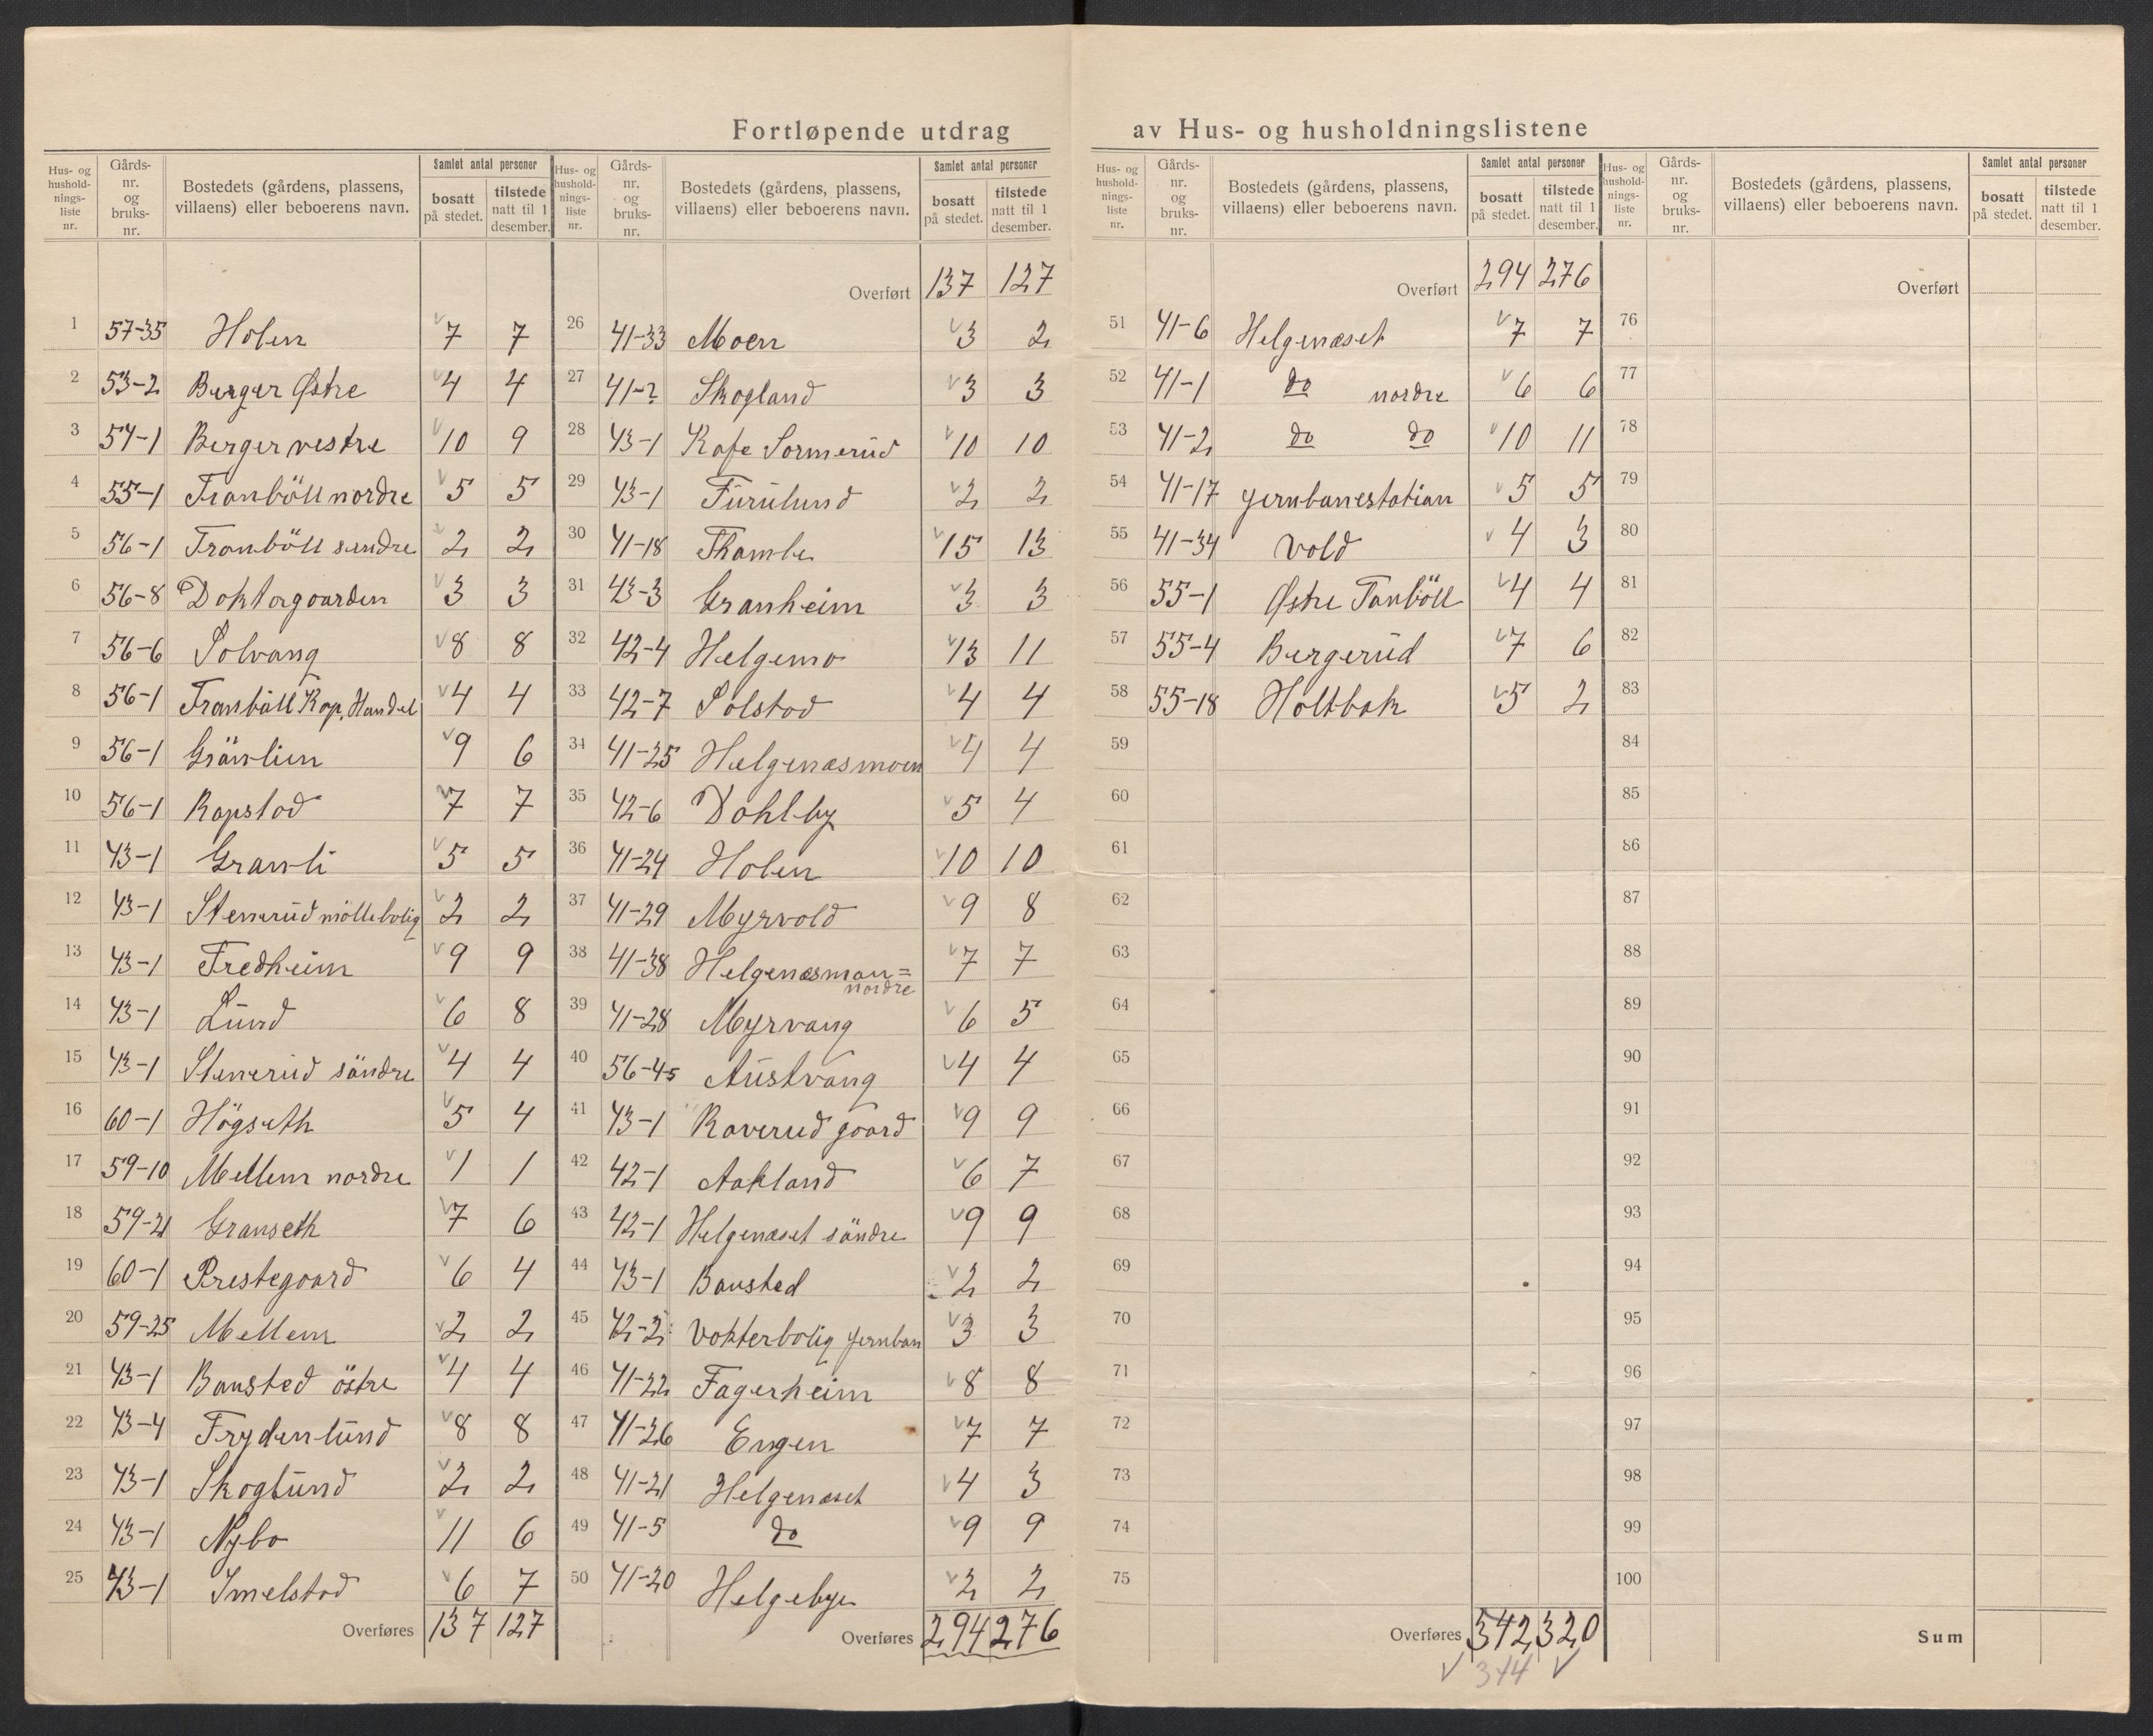 Fortløpende utdrag av Hus- og husholdningslistene
Hus- og hushold-nings-liste nr. | Gårds-nr. og bruks-nr. | Bostedets (gårdens, plassens, villaens) eller beboerens navn. | Samlet antal personer bosatt på stedet. | tilstede natt til 1 desember.
1 57-35 Holen 7 7
2 53-2 Berger Østre 4 4
3 54-1 Berger vestre 10 9
4 55-1 Tranböll nordre 5 5
5 56-1 Tranböll söndre 2 2
6 56-8 Doktorgaarden 3 3
7 56-6 Solvang 8 8
8 56-1 Tranböll Kap, Handel 4 4
9 56-1 Grönlien 9 6
10 56-1 Rapstad 7 7
11 43-1 Granli 5 5
12 43-1 Stenerud möllebolig 2 2
13 43-1 Fredheim 9 9
14 43-1 Lund 6 8
15 43-1 Stenerud söndre 4 4
16 60-1 Högseth 5 4
17 59-10 Mellem nordre 1 1
18 59-21 Granseth 7 6
19 60-1 Prestegaard 6 4
20 59-25 Mellem 2 2
21 43-1 Bansted östre 4 4
22 43-4 Frydenlund 8 8
23 43-1 Skoglund 2 2
24 43-1 Nybo 11 6
25 43-1 Imelstad 6 7
Overføres 137 127
Hus- og hushold-nings-liste nr. | Gårds-nr. og bruks-nr. | Bostedets (gårdens, plassens, villaens) eller beboerens navn. | Samlet antal personer bosatt på stedet. | tilstede natt til 1 desember.
Overført 137 127
26 41-33 Moen 3 2
27 41-? Skogland 3 3
28 43-1 Kafe Sormerud 10 10
29 43-1 Furulund 2 2
30 41-18 Thambe 15 13
31 43-3 Granheim 3 3
32 42-4 Helgemo 13 11
33 42-7 Solstad 4 4
34 41-25 Helgenæsmoen 4 4
35 42-6 Dahlby 5 4
36 41-24 Holen 10 10
37 41-29 Myrvold 9 8
38 41-38 Helgenæsmon= nordre 7 7
39 41-28 Myrvang 6 5
40 56-45 Austvang 4 4
41 43-1 Raverud gaard 9 9
42 42-1 Aakland 6 7
43 42-1 Helgenæset söndre 9 9
44 43-1 Bansted 2 2
45 42-2 Vokterbolig Jernban 3 3
46 41-22 Fagerheim 8 8
47 41-26 Engen 7 7
48 41-21 Helgenæset 4 3
49 41-5 do 9 9
50 41-20 Helgebye 2 2
Overføres 294 276
Hus- og hushold-nings-liste nr. | Gårds-nr. og bruks-nr. | Bostedets (gårdens, plassens, villaens) eller beboerens navn. | Samlet antal personer bosatt på stedet. | tilstede natt til 1 desember.
Overført 294 276
51 41-6 Helgenæset 7 7
52 41-1 do nordre 6 6
53 41-2 do do 10 11
54 41-17 Jernbanestation 5 5
55 41-34 Vold 4 3
56 55-1 Østre Tanböll 4 4
57 55-4 Bergerud 7 6
58 55-18 Holtbak 5 2
59
60
61
62
63
64
65
66
67
68
69
70
71
72
73
74
75
Overføres 342 320
344
Hus- og hushold-nings-liste nr. | Gårds-nr. og bruks-nr. | Bostedets (gårdens, plassens, villaens) eller beboerens navn. | Samlet antal personer bosatt på stedet. | tilstede natt til 1 desember.
Overført
76
77
78
79
80
81
82
83
84
85
86
87
88
89
90
91
92
93
94
95
96
97
98
99
100
Sum